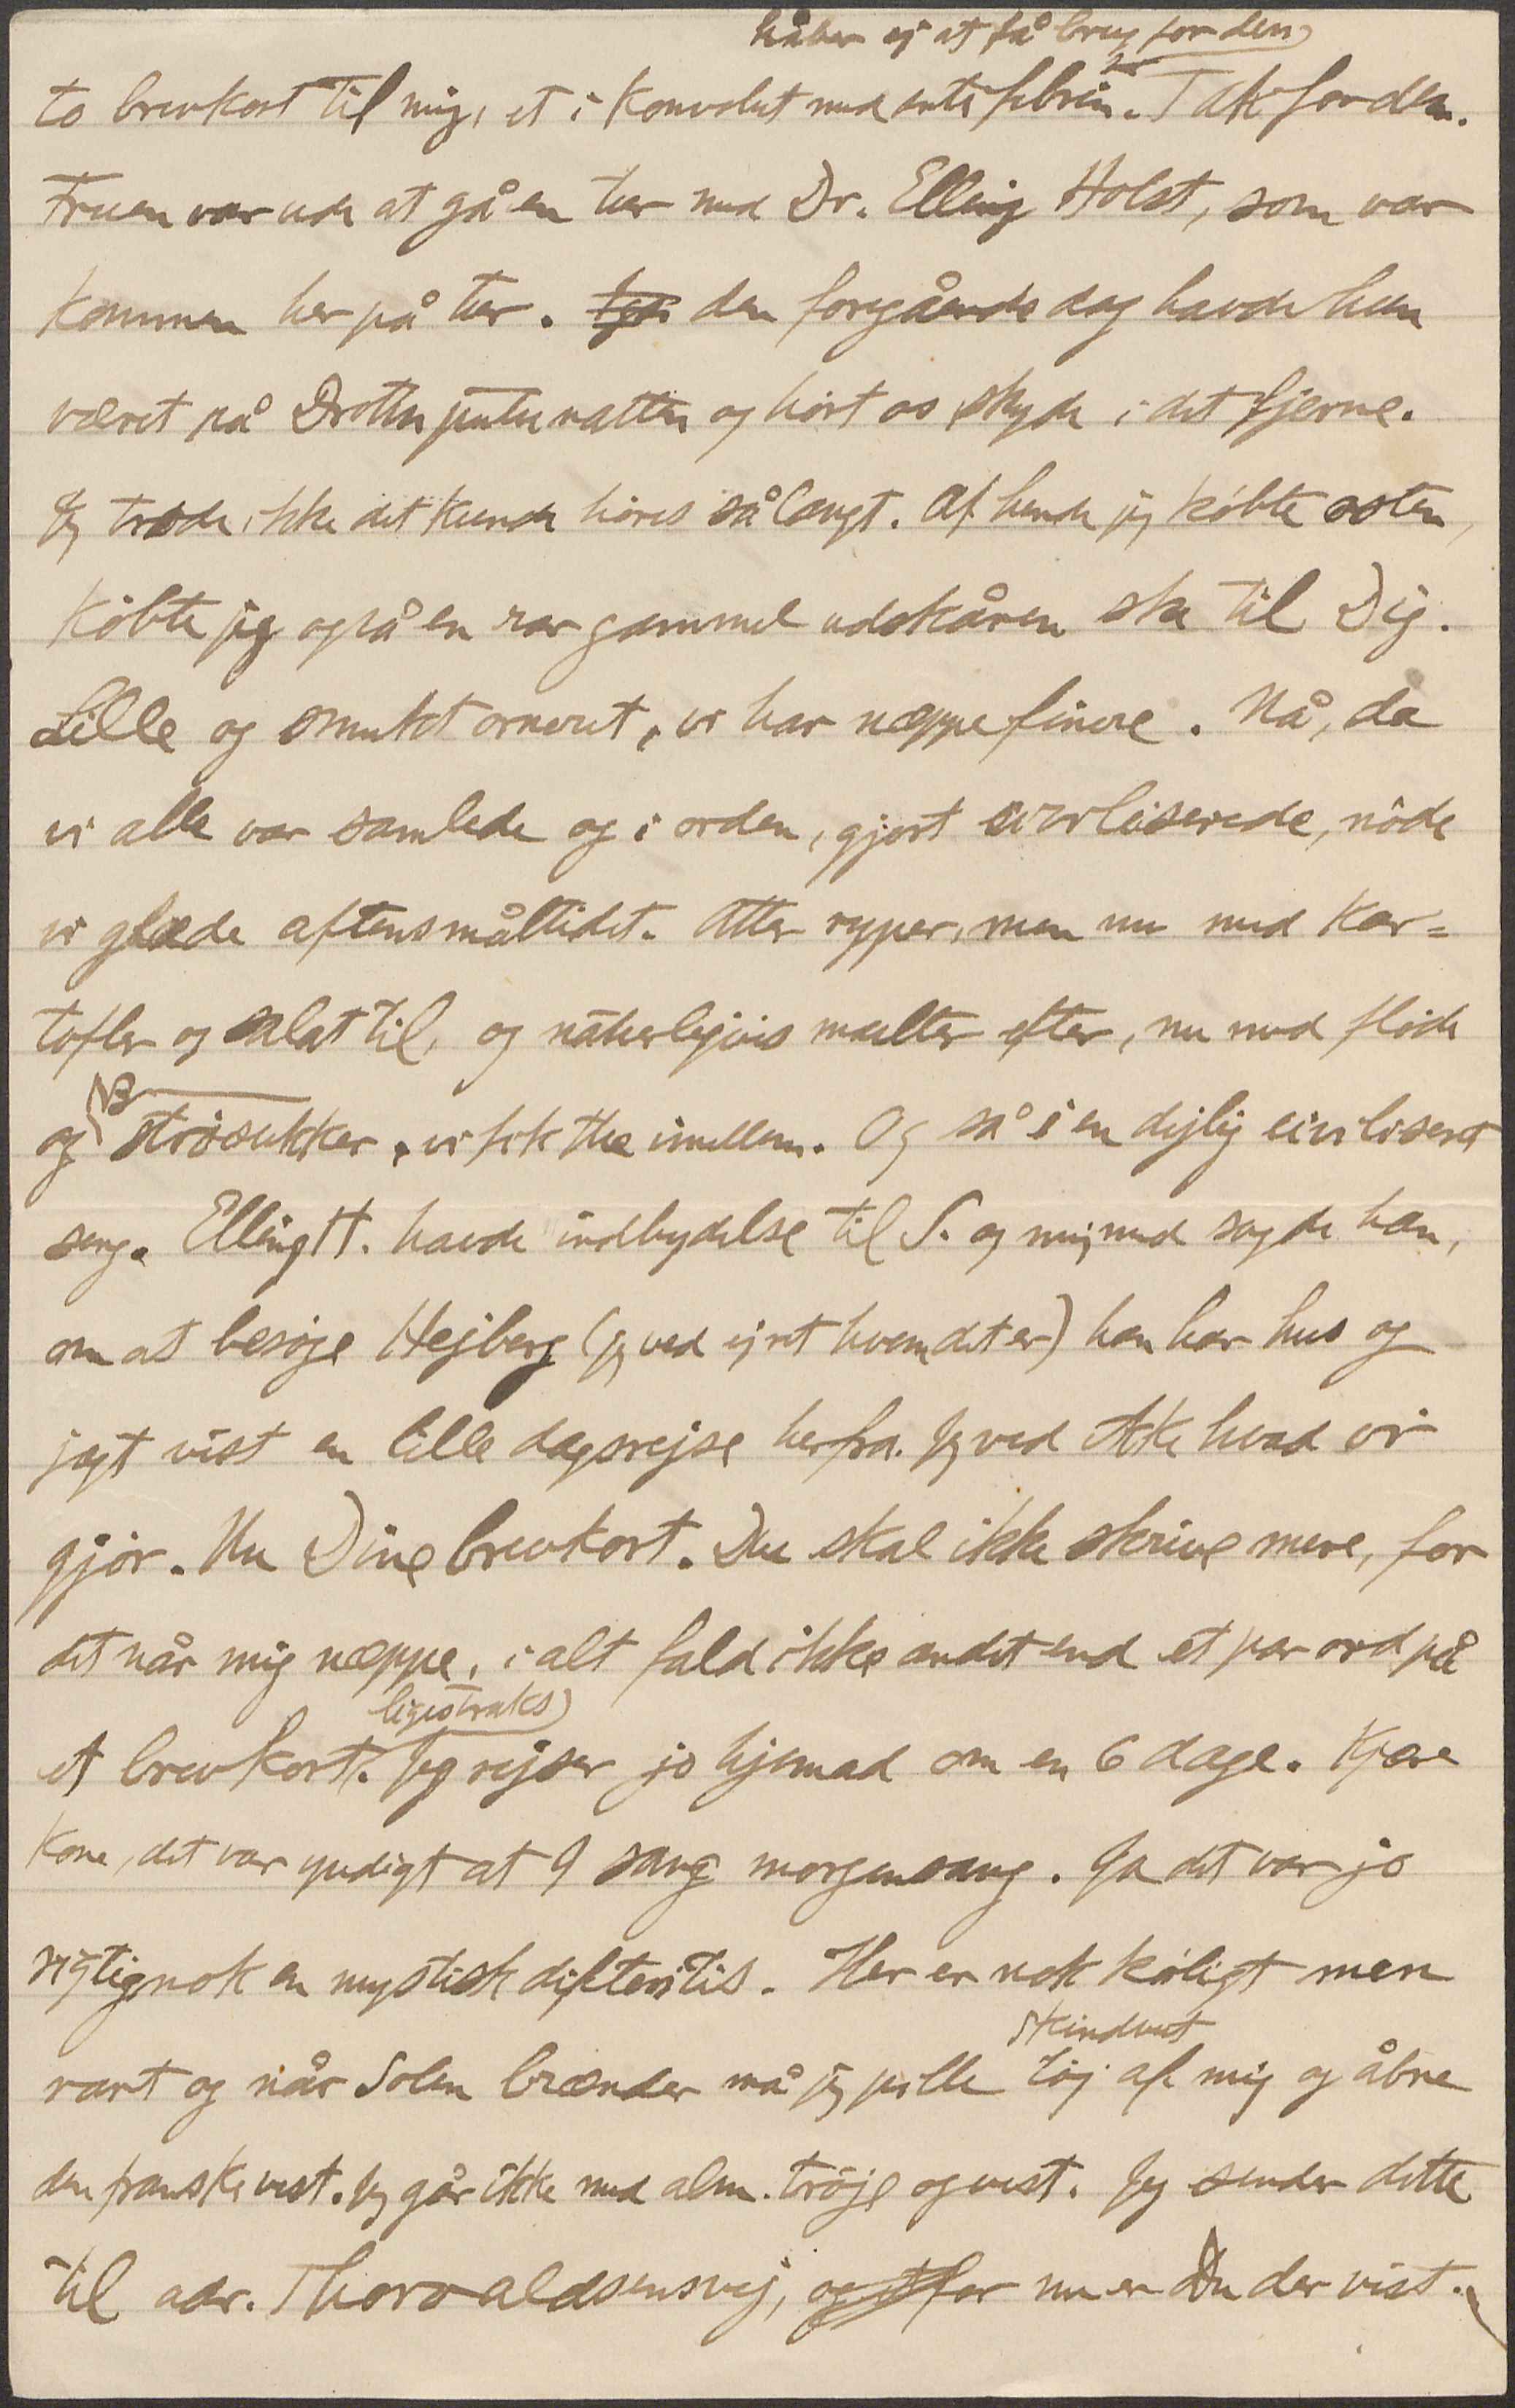 håber ej at få brug for den
to brevkort til mig, et i konvolut med antifebrin. Tak for dem.
Fruen var ude at gå en tur med Dr. Elling Holst, som var
kommen her på tur. den foregående dag havde hun
været på og hört os skyde i det fjerne.
Jeg troede ikke det kunde höres så langt. Af hende jeg köbte osten,
köbte jeg også en rar gammel udskåren ske til Dig.
Lille og smukt orneret, vi har næppe finere. Nå, da
vi alle var samlede og i orden, gjort civiliserede, nöde
vi glade aftensmåltidet. Atter ryper, men nu med kar=
tofler og salat til, og naturligvis multer efter, nu med flöde
og NB strösukker, vi fik the imellem. Og så i en dejlig civiliseret
seng. Elling H. havde indbydelse til S. og mig med sagde han,
om at besöge Hejberg (jeg ved ej ret hvem det er) han har hus og
jagt vist en lille dagsrejse herfra. Jeg ved ikke hvad vi
gjör. Nu Dine brevkort. Du skal ikke skrive mere, for
det når mig næppe, i alt fald ikke andet end et par ord på
ligestraks
et brevkort. Jeg rejser jo hjemad om en 6 dage. Kjære
Kone, det var yndigt at I sang morgensang. Ja det var jo
rigtignok en mystisk difteritis. Her er nok köligt men
skindvest
rart og når Solen brænder må jeg pille töj af mig og åbne
den franske vest. Jeg går ikke med alm. tröje og vest. Jeg sender dette
til adr. Thorvaldsensvej, for nu er Du der vist.